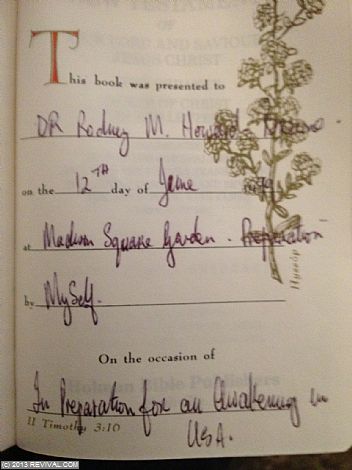 NEW TESTAMENT
OF
OUR LORD AND SAVIOUR
JESUS CHRIST
This book was presented to
OF CHRIST
DR Rodney M. Howard-Browne.
on the 12TH day of June
at Madison Square Garden - Preparation
by MySelf.
Hyssop
On the occasion of
Holman Bible Publishers
In Preparation for an Awakening in
II Timothy 3:10
USA.
(c) 2013 REVIVAL.COM